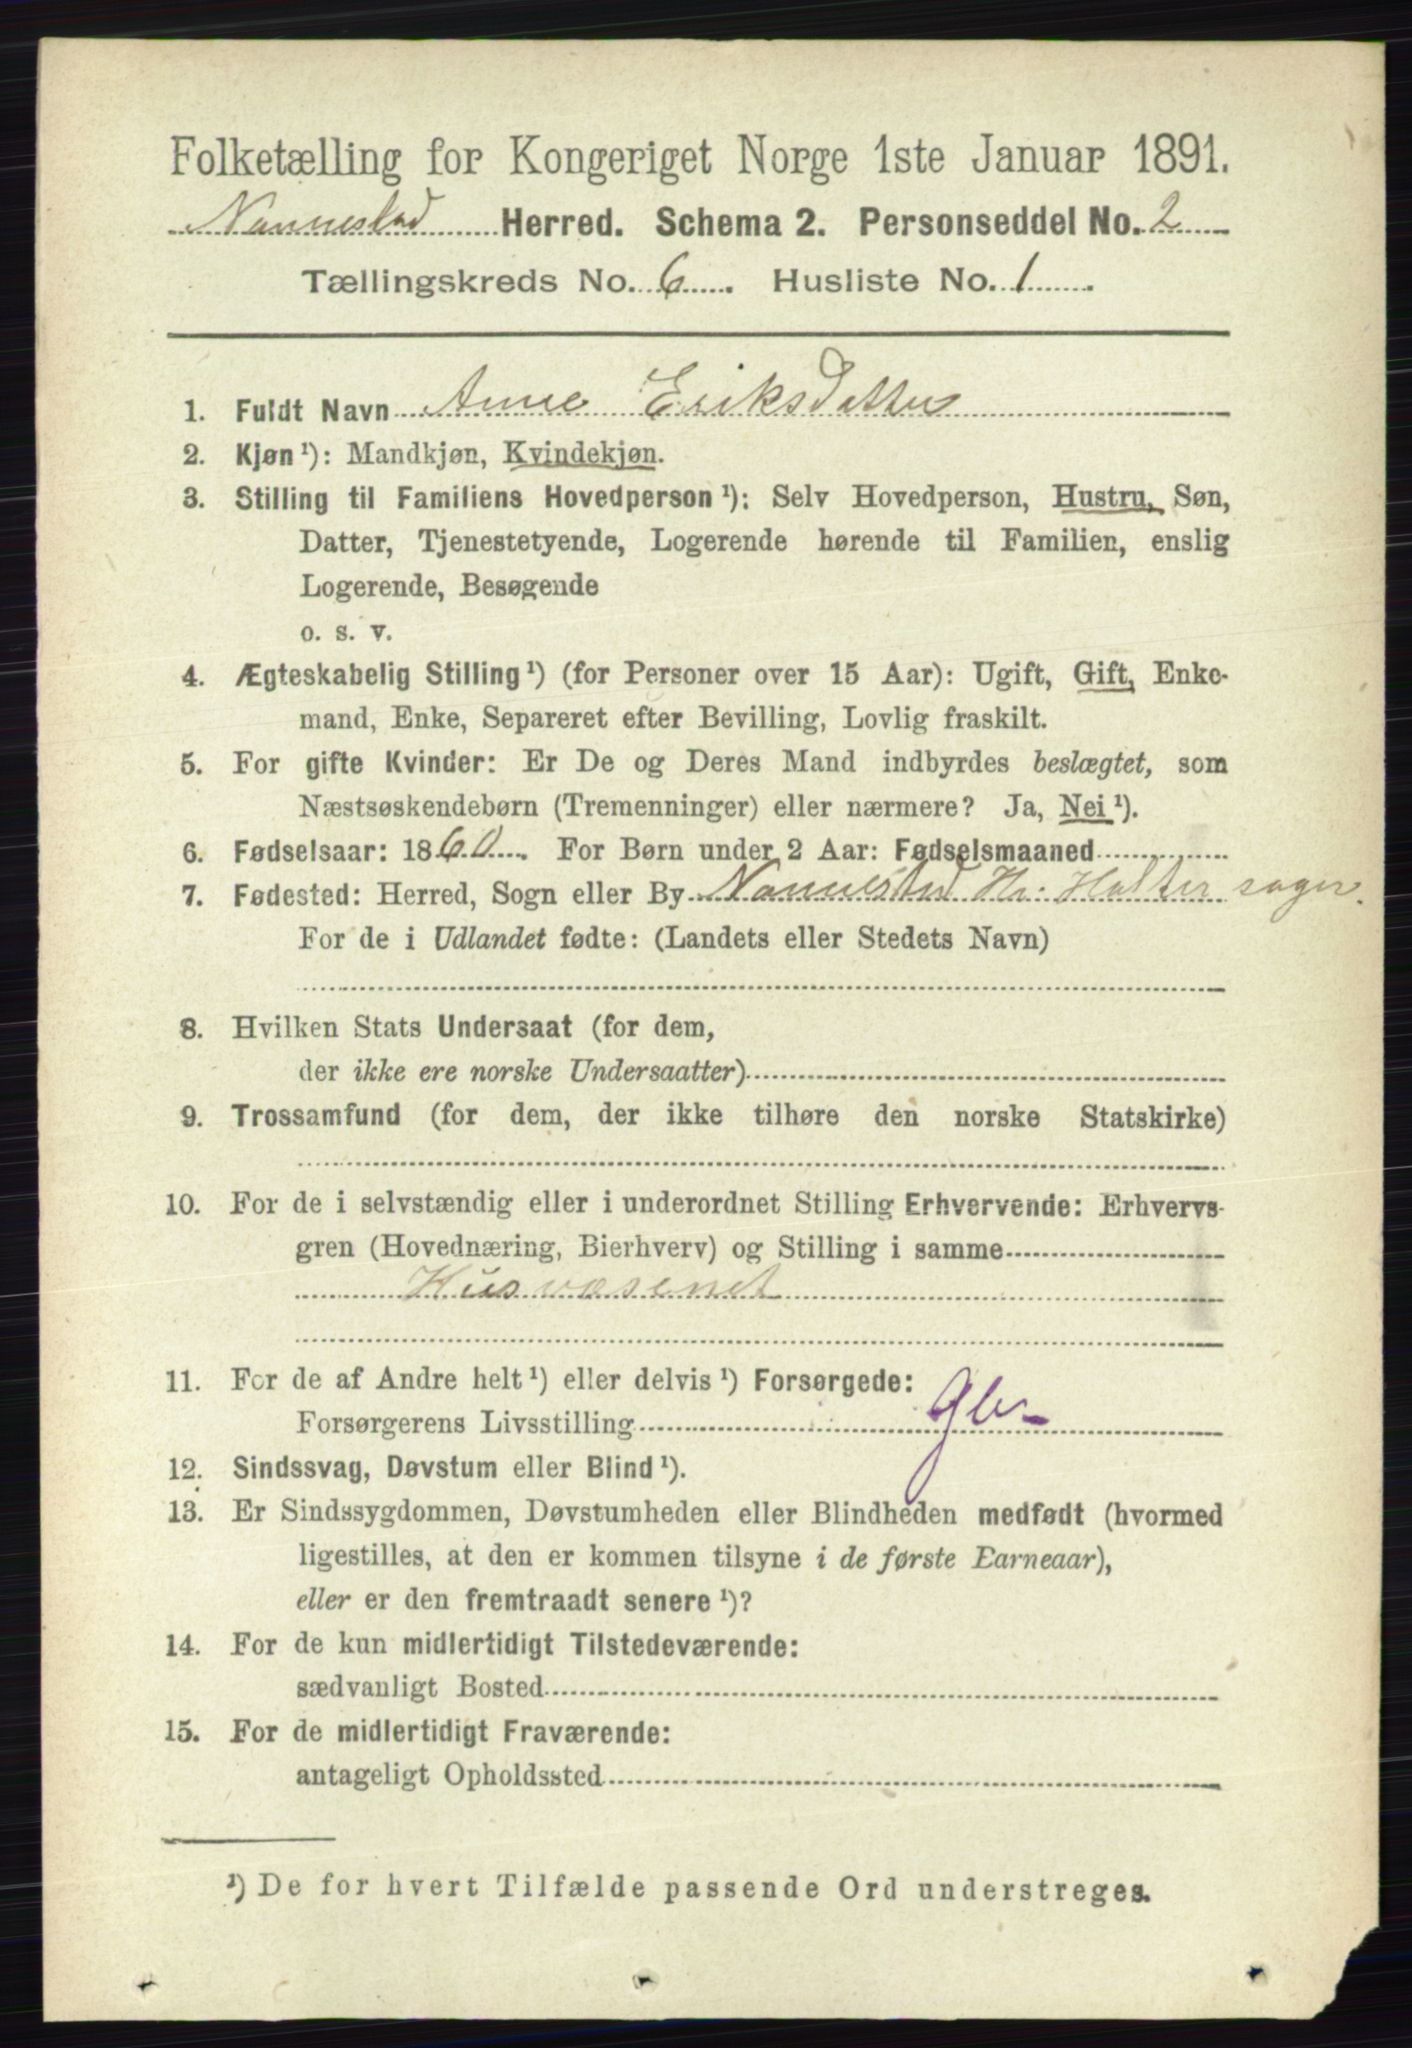 Folketælling for Kongeriget Norge 1ste Januar 1891.
Nannestad Herred. Schema 2. Personseddel No. 2
Tællingskreds No. 6. Husliste No. 1.
1. Fuldt Navn Anne Eriksdatter
2. Kjøn ¹): Mandkjøn, Kvindekjøn.
3. Stilling til Familiens Hovedperson ¹): Selv Hovedperson, Hustru, Søn,
Datter, Tjenestetyende, Logerende hørende til Familien, enslig
Logerende, Besøgende
o. s. v.
4. Ægteskabelig Stilling ¹) (for Personer over 15 Aar): Ugift, Gift, Enke-
mand, Enke, Separeret efter Bevilling, Lovlig fraskilt.
5. For gifte Kvinder: Er De og Deres Mand indbyrdes beslægtet, som
Næstsøskendebørn (Tremenninger) eller nærmere? Ja, Nei ¹).
6. Fødselsaar: 1860. For Børn under 2 Aar: Fødselsmaaned
7. Fødested: Herred, Sogn eller By Nannestad Hr. Holter sogn.
For de i Udlandet fødte: (Landets eller Stedets Navn)
8. Hvilken Stats Undersaat (for dem,
der ikke ere norske Undersaatter)
9. Trossamfund (for dem, der ikke tilhøre den norske Statskirke)
10. For de i selvstændig eller i underordnet Stilling Erhvervende: Erhvervs-
gren (Hovednæring, Bierhverv) og Stilling i samme
Husvæsenet
11. For de af Andre helt ¹) eller delvis ¹) Forsørgede:
Forsørgerens Livsstilling
12. Sindssvag, Døvstum eller Blind ¹).
13. Er Sindssygdommen, Døvstumheden eller Blindheden medfødt (hvormed
ligestilles, at den er kommen tilsyne i de første Barneaar),
eller er den fremtraadt senere ¹)?
14. For de kun midlertidigt Tilstedeværende:
sædvanligt Bosted
15. For de midlertidigt Fraværende:
antageligt Opholdssted
¹) De for hvert Tilfælde passende Ord understreges.